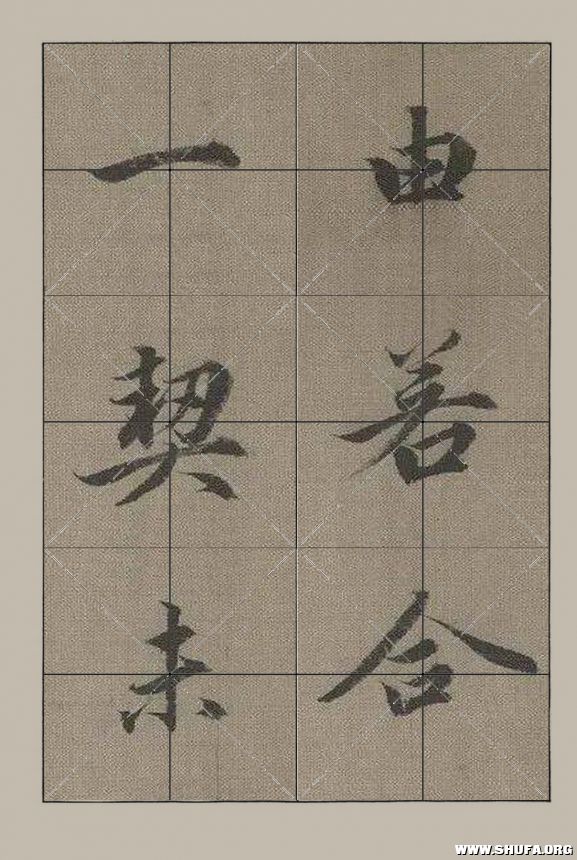 由若合
一契未
WWW.SHUFA.ORG